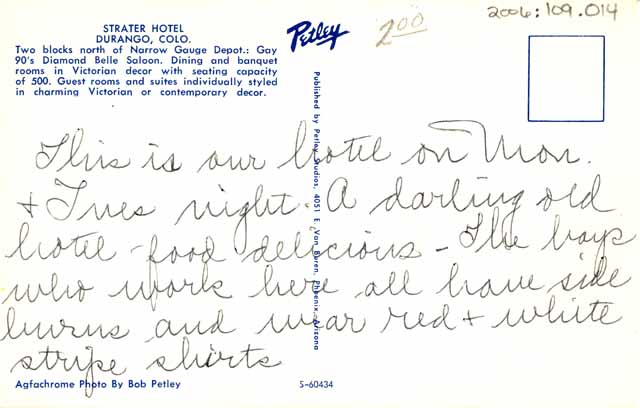 STRATER HOTEL
DURANGO, COLO.
Two blocks north of Narrow Gauge Depot.: Gay
90's Diamond Belle Saloon. Dining and banquet
rooms in Victorian decor with seating capacity
of 500. Guest rooms and suites individually styled
in charming Victorian or contemporary decor.
Petley
2.00
2006:109.014
Published by Petley Studios, 4051 E. Van Buren, Phoenix, Arizona
This is our hotel on Mon.
+ Tues night. A darling old
hotel - food delicious - The boys
who work here all have side
burns and wear red + white
stripe shirts
Agfachrome Photo By Bob Petley
S-60434